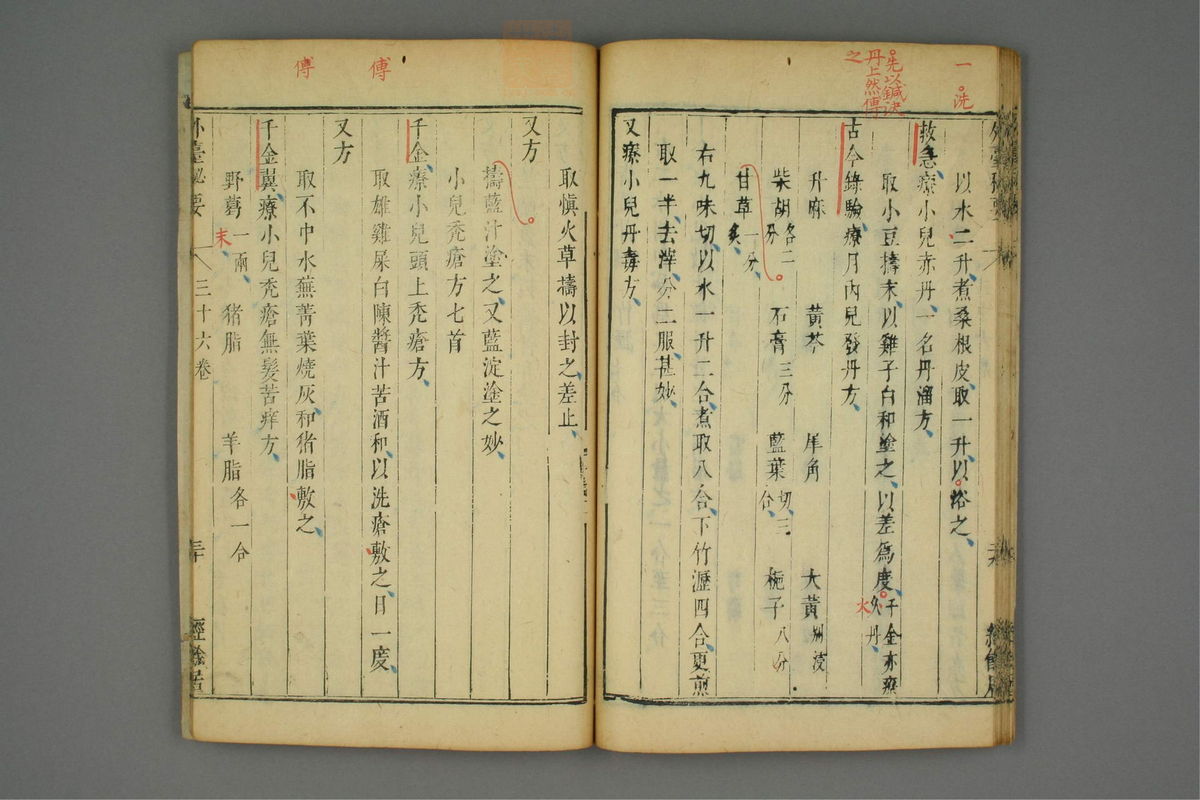 一洗
先以鍼決
丹上然傅
之
以水二升煮桑根皮取一升以浴之
救急療小兒赤丹一名丹溜方
取小豆擣末以雞子白和塗之以差為度千金亦療
火丹
古今錄驗療月內兒發丹方
升麻 黃芩 犀角 大黃
柴胡各二分 石膏三分 藍葉切三合 梔子八分
甘草一分炙
右九味切以水一升二合煮取八合下竹瀝四合更煎
取一半去滓分二服甚妙
又療小兒丹毒方
傅
傅
取慎火草擣以封之差止
又方
擣藍汁塗之又藍淀塗之妙
小兒禿瘡方七首
千金療小兒頭上禿瘡方
取雄雞屎白陳醬汁苦酒和以洗瘡敷之日一度
又方
取不中水蕪菁葉燒灰和猪脂敷之
千金翼療小兒禿瘡無髮苦痒方
野葛一兩末 猪脂 羊脂各一合
外臺秘要 三十六卷 三十 經餘居